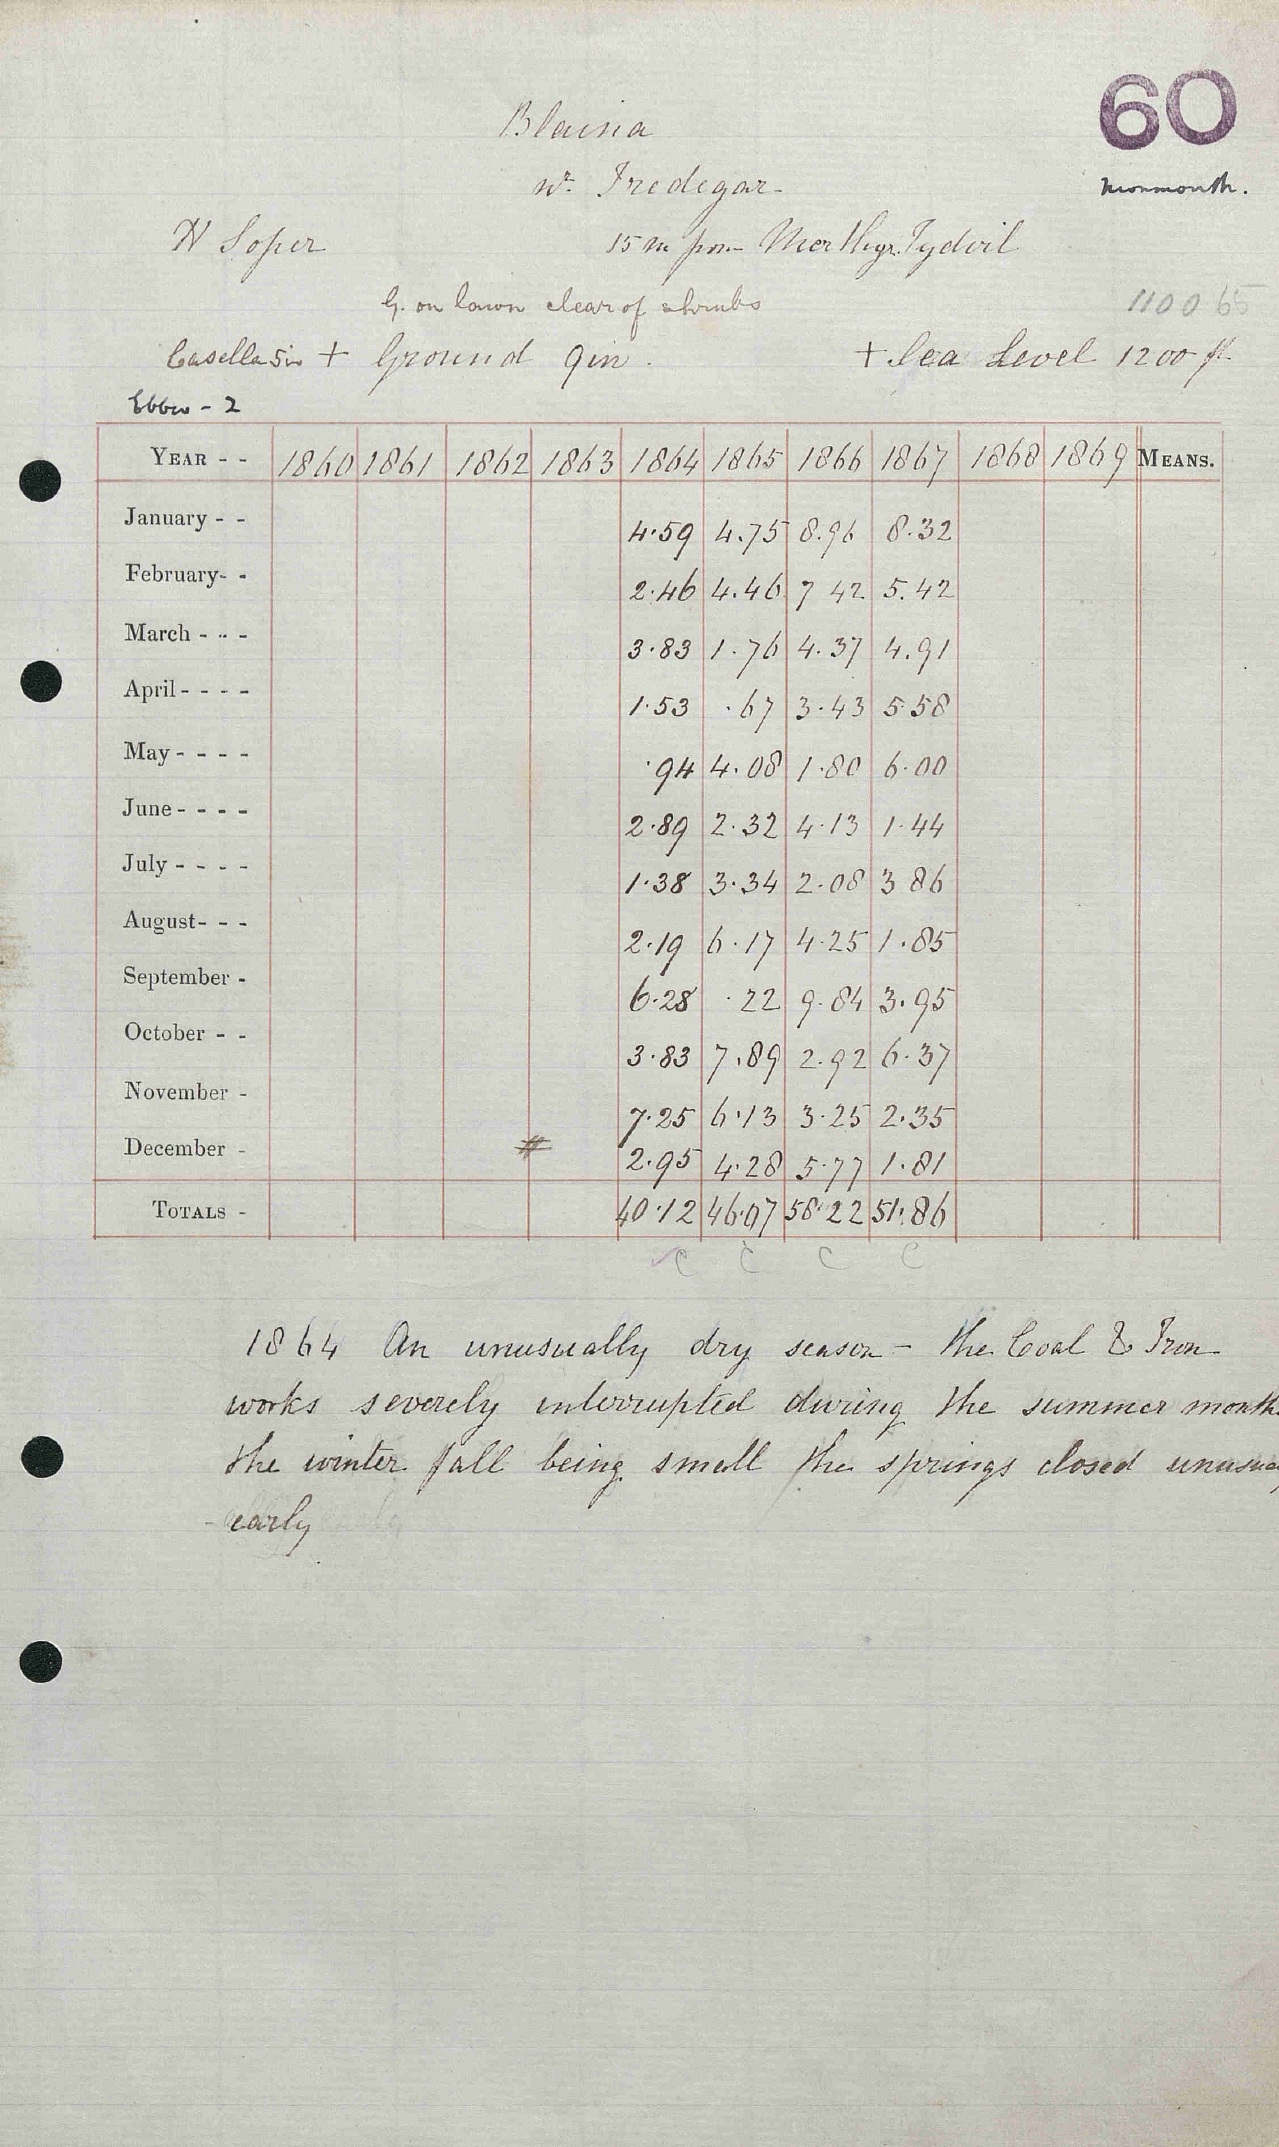 60
Monmouth.
Blaina
nr. Tredegar
W Soper 15 m from Merthyr Tydvil
G. on lawn clear of shrubs 1100 65
Casella 5in + Ground 9in. + Sea Level 1200 ft
Ebbw - 2
YEAR - - 1860 1861 1862 1863 1864 1865 1866 1867 1868 1869 MEANS.
January - - 4.59 4.75 8.96 8.32
February- - 2.46 4.46 7 42 5.42
March - - - 3.83 1.76 4.37 4.91
April - - - - 1.53 .67 3.43 5.58
May - - - - .94 4.08 1.80 6.00
June - - - - 2.89 2.32 4.13 1.44
July - - - - 1.38 3.34 2.08 3 86
August- - - 2.19 6.17 4.25 1.85
September - 6.28 .22 9.84 3.95
October - - 3.83 7.89 2.92 6.37
November - 7.25 6.13 3.25 2.35
December - # 2.95 4.28 5.77 1.81
TOTALS - 40.12 46.07 58.22 51.86
C C C C
1864 An unusually dry season - the Coal & Iron
works severely interrupted during the summer month
the winter fall being small the springs closed unusua
- early